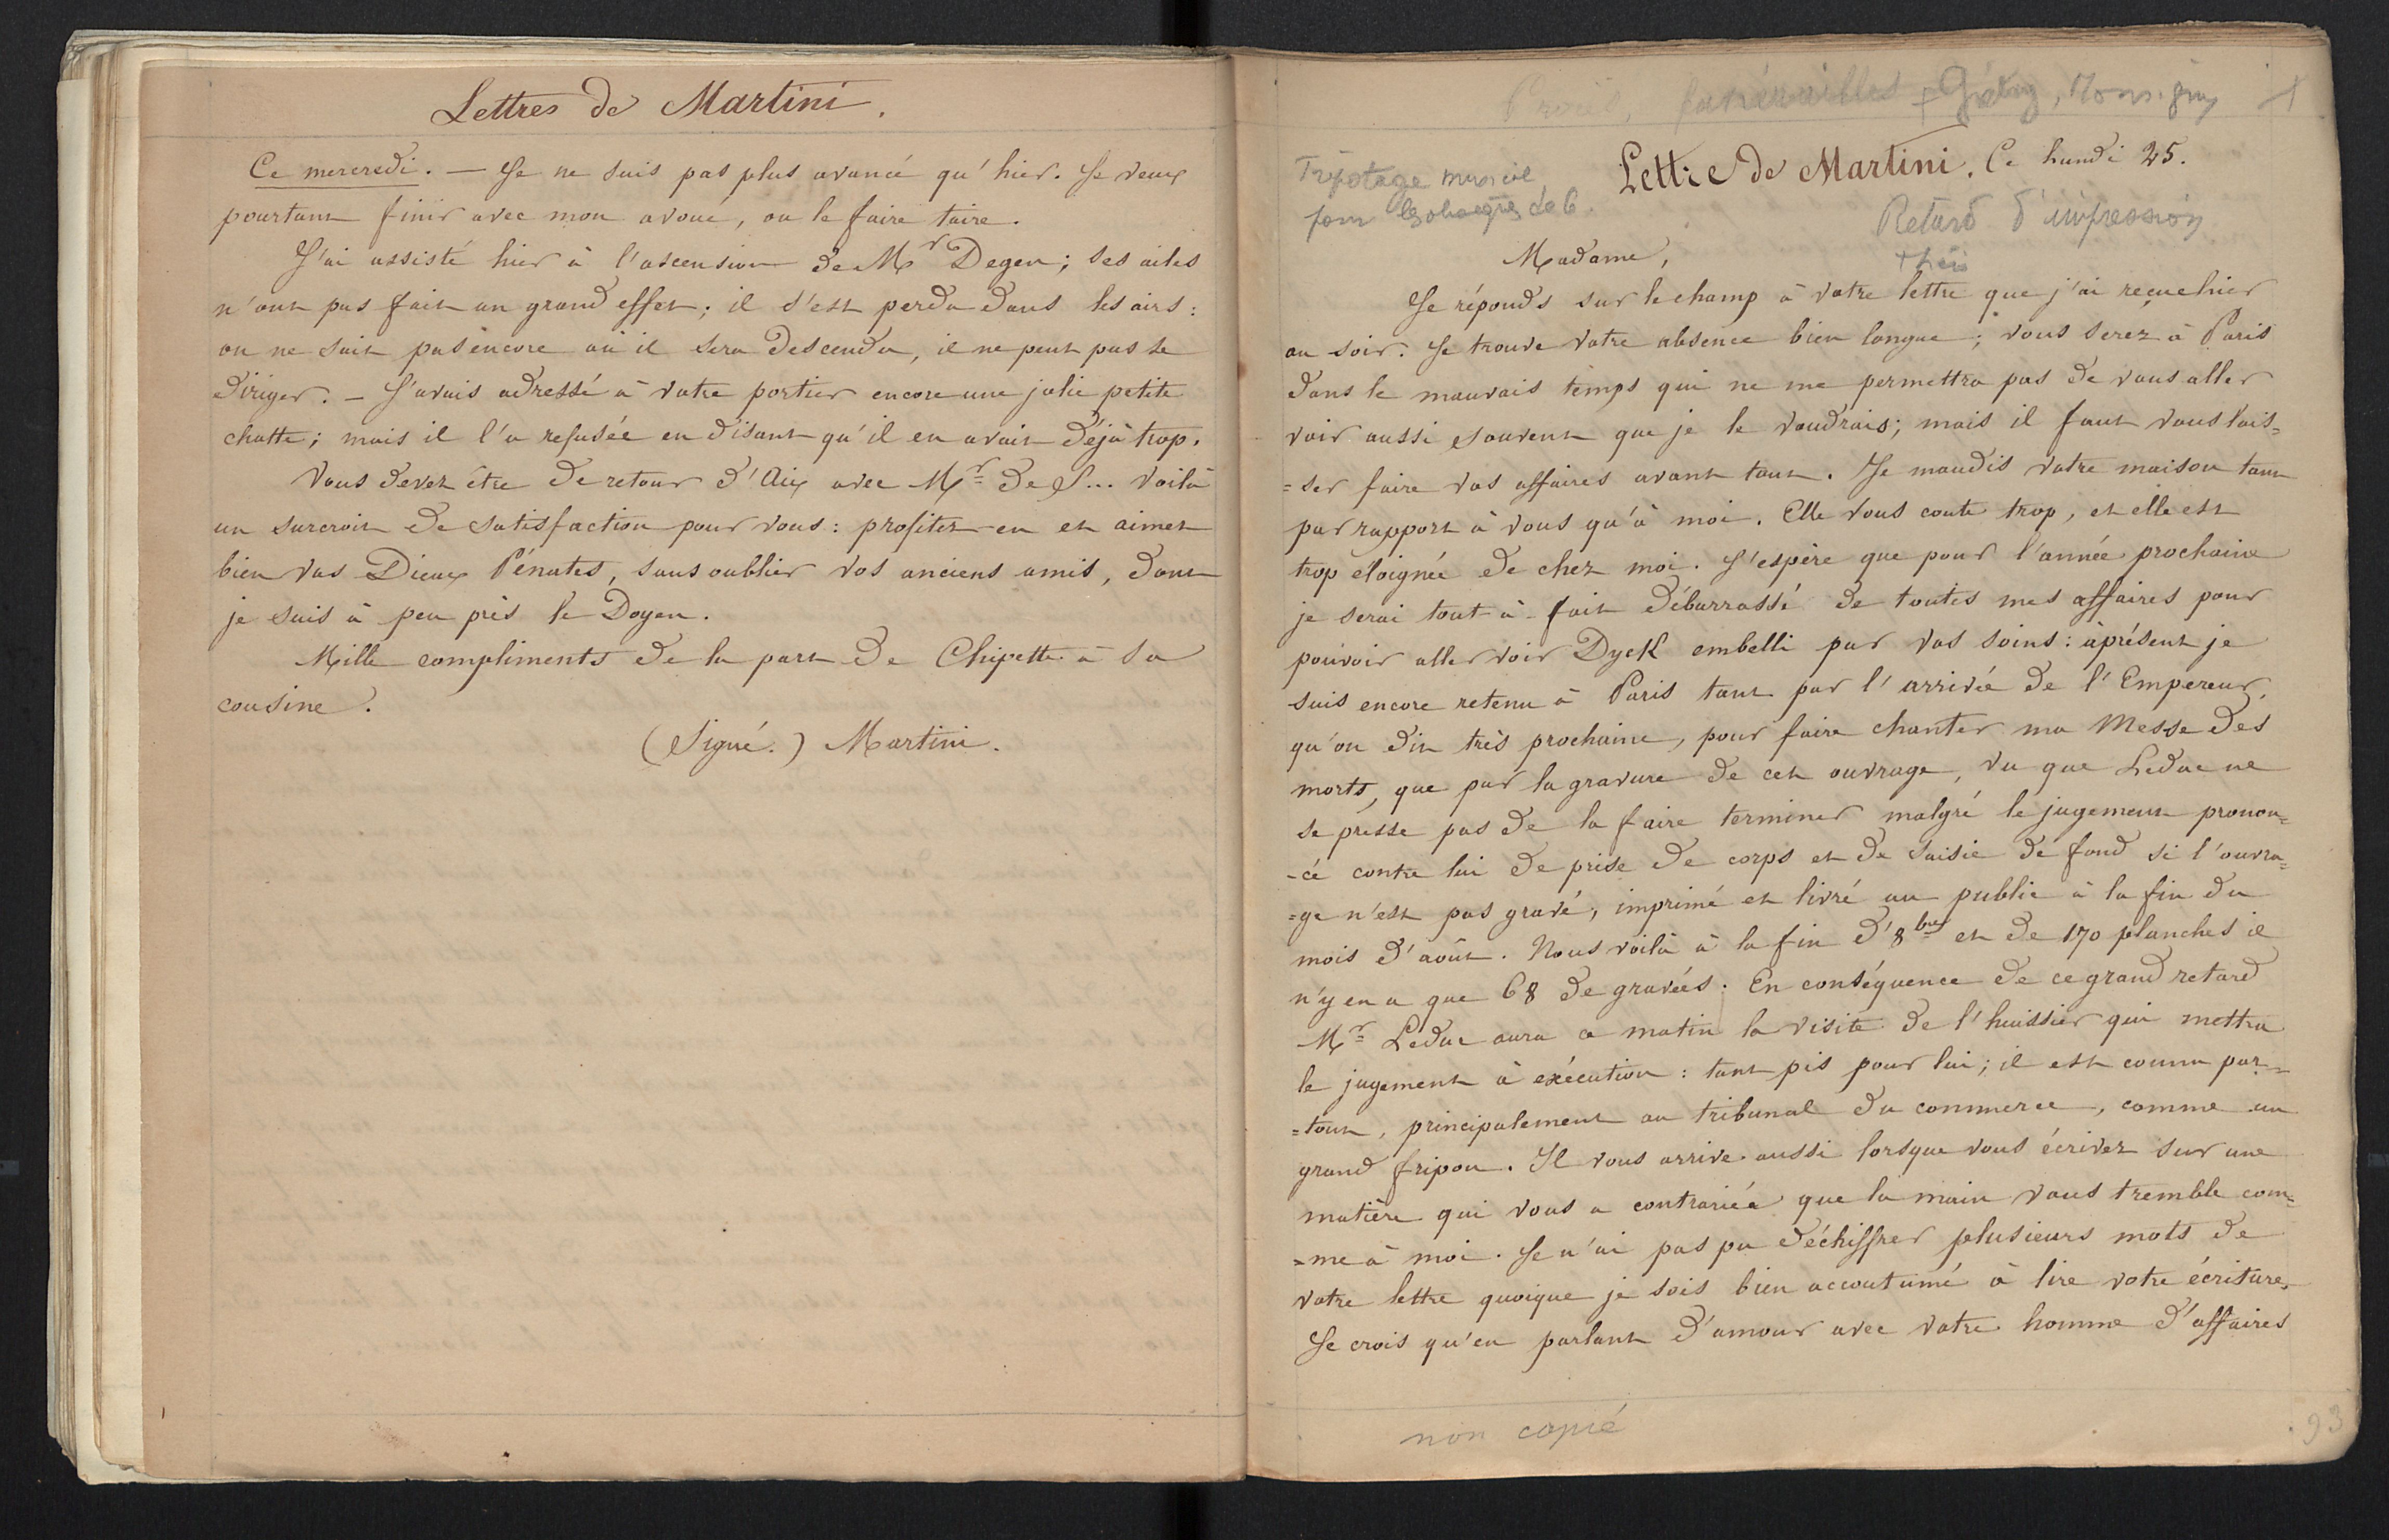 Lettres de Martini.
Ce mercredi. — Je ne suis pas plus avancé qu'hier. Je veux
pourtant finir avec mon avoué, ou le faire taire.
J'ai assisté hier à l'ascension de Mr Degen; ses ailes
n'ont pas fait un grand effet; il s'est perdu dans les airs:
on ne sait pas encore où il sera descendu, il ne peut pas se
diriger. — J'avais adressé à votre portier encore une jolie petite
chatte; mais il l'a refusée en disant qu'il en avait déjà trop.
Vous devez être de retour d'Aix avec Mr de S... Voilà
un surcroit de satisfaction pour vous: profitez-en et aimez
bien vos Dieux Pénates, sans oublier vos anciens amis, dont
je suis à peu près le Doyen.
Mille compliments de la part de Chipette à sa
cousine.
(Signé.) Martini.
Procès, funérailles + Grétry, Monsigny
Tripotage musical
pour les obsèques de G.
Lettre de Martini. Ce lundi 25.
Retard d'impression
Madame,
Je réponds sur le champ à votre lettre que j'ai reçue hier
au soir. Je trouve votre absence bien longue; vous serez à Paris
dans le mauvais temps qui ne me permettra pas de vous aller
voir aussi souvent que je le voudrais; mais il faut vous lais=
=ser faire vos affaires avant tout. Je maudis votre maison tant
par rapport à vous qu'à moi. Elle vous coute trop, et elle est
trop eloignée de chez moi. J'espère que pour l'année prochaine
je serai tout-à-fait débarrassé de toutes mes affaires pour
pouvoir aller voir Dyck embelli par vos soins: àprésent je
suis encore retenu à Paris tant par l'arrivée de l'Empereur,
qu'on dit très prochaine, pour faire chanter ma Messe des
morts, que par la gravure de cet ouvrage, vu que Leduc ne
se presse pas de la faire terminer malgré le jugement pronon=
-cé contre lui de prise de corps et de saisie de fond si l'ouvra=
=ge n'est pas gravé, imprimé et livré au public à la fin du
mois d'août. Nous voilà à la fin d'8bre et de 170 planches il
n'y en a que 68 de gravées. En conséquence de ce grand retard
Mr Leduc aura ce matin la visite de l'huissier qui mettra
le jugement à exécution: tant pis pour lui; il est connu par=
=tout, principalement au tribunal du commerce, comme un
grand fripon. Il vous arrive aussi lorsque vous écrivez sur une
matière qui vous a contrariée que la main vous tremble com=
=me à moi. Je n'ai pas pu déchiffrer plusieurs mots de
votre lettre quoique je sois bien accoutumé à lire votre écriture.
Je crois qu'en parlant d'amour avec votre homme d'affaires
non copié
93